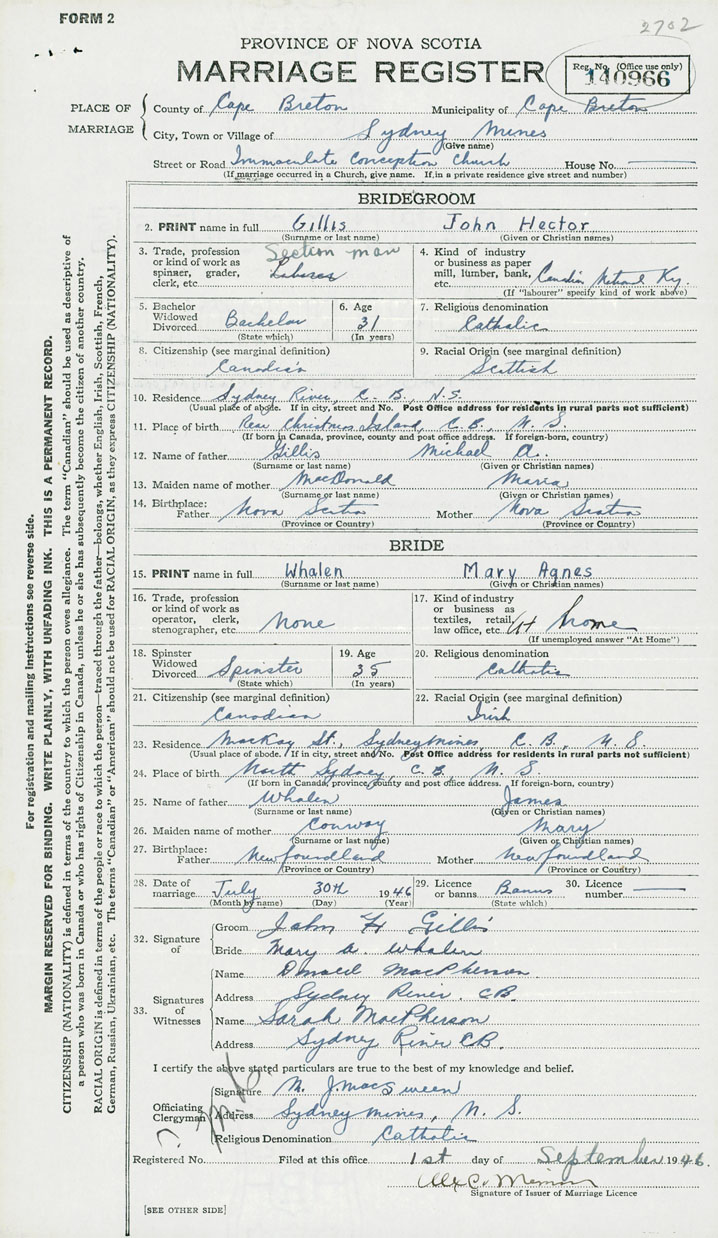 FORM 2
2702
PROVINCE OF NOVA SCOTIA
MARRIAGE REGISTER
Reg. No. (Office use only)
140966
PLACE OF MARRIAGE
County of Cape Breton Municipality of Cape Breton
City, Town or Village of Sydney Mines
(Give name)
Street or Road Immaculate Conception Church House No.
(If marriage occurred in a Church, give name. If in a private residence give street and number)
BRIDEGROOM
2. PRINT name in full Gillis John Hector
(Surname or last name) (Given or Christian names)
3. Trade, profession or kind of work as spinner, grader, clerk, etc. Section man Laborer
4. Kind of industry or business as paper mill, lumber, bank, etc. Canadian National Ry.
(If "labourer" specify kind of work above)
5. Bachelor Widowed Divorced Bachelor
(State which)
6. Age 31
(In years)
7. Religious denomination
Catholic
8. Citizenship (see marginal definition)
Canadian
9. Racial Origin (see marginal definition)
Scottish
10. Residence Sydney River, C. B., N.S.
(Usual place of abode. If in city, street and No. Post Office address for residents in rural parts not sufficient)
11. Place of birth Rear Christmas Island, C.B., N. S.
(If born in Canada, province, county and post office address. If foreign-born, country)
12. Name of father Gillis Michael A.
(Surname or last name) (Given or Christian names)
13. Maiden name of mother MacDonald Maria
(Surname or last name) (Given or Christian names)
14. Birthplace: Father Nova Scotia Mother Nova Scotia
(Province or Country) (Province or Country)
BRIDE
15. PRINT name in full Whalen Mary Agnes
(Surname or last name) (Given or Christian names)
16. Trade, profession or kind of work as operator, clerk, stenographer, etc. None
17. Kind of industry or business as textiles, retail, law office, etc. At home
(If unemployed answer "At Home")
18. Spinster Widowed Divorced Spinster
(State which)
19. Age 35
(In years)
20. Religious denomination
Catholic
21. Citizenship (see marginal definition)
Canadian
22. Racial Origin (see marginal definition)
Irish
23. Residence MacKay St., Sydney Mines C. B., N. S.
(Usual place of abode. If in city, street and No. Post Office address for residents in rural parts not sufficient)
24. Place of birth North Sydney, C. B., N. S.
(If born in Canada, province, county and post office address. If foreign-born, country)
25. Name of father Whalen James
(Surname or last name) (Given or Christian names)
26. Maiden name of mother Conway Mary
(Surname or last name) (Given or Christian names)
27. Birthplace: Father Newfoundland Mother Newfoundland
(Province or Country) (Province or Country)
28. Date of marriage July 30th 1946
(Month by name) (Day) (Year)
29. Licence or banns Banns
(State which)
30. Licence number
32. Signature of
Groom John H Gillis
Bride Mary A. Whalen
33. Signatures of Witnesses
Name Donald MacPherson
Address Sydney River. C.B.
Name Sarah MacPherson
Address Sydney River C.B.
I certify the above stated particulars are true to the best of my knowledge and belief.
Officiating Clergyman
Signature M. J. MacSween
Address Sydney Mines, N. S.
Religious Denomination Catholic
Registered No. Filed at this office 1st day of September 1946.
Signature of Issuer of Marriage Licence
[SEE OTHER SIDE]
For registration and mailing instructions see reverse side.
MARGIN RESERVED FOR BINDING. WRITE PLAINLY, WITH UNFADING INK. THIS IS A PERMANENT RECORD.
CITIZENSHIP (NATIONALITY) is defined in terms of the country to which the person owes allegiance. The term "Canadian" should be used as descriptive of
a person who was born in Canada or who has rights of Citizenship in Canada, unless he or she has subsequently become the citizen of another country.
RACIAL ORIGIN is defined in terms of the people or race to which the person—traced through the father—belongs, whether English, Irish, Scottish, French,
German, Russian, Ukrainian, etc. The terms "Canadian" or "American" should not be used for RACIAL ORIGIN, as they express CITIZENSHIP (NATIONALITY).